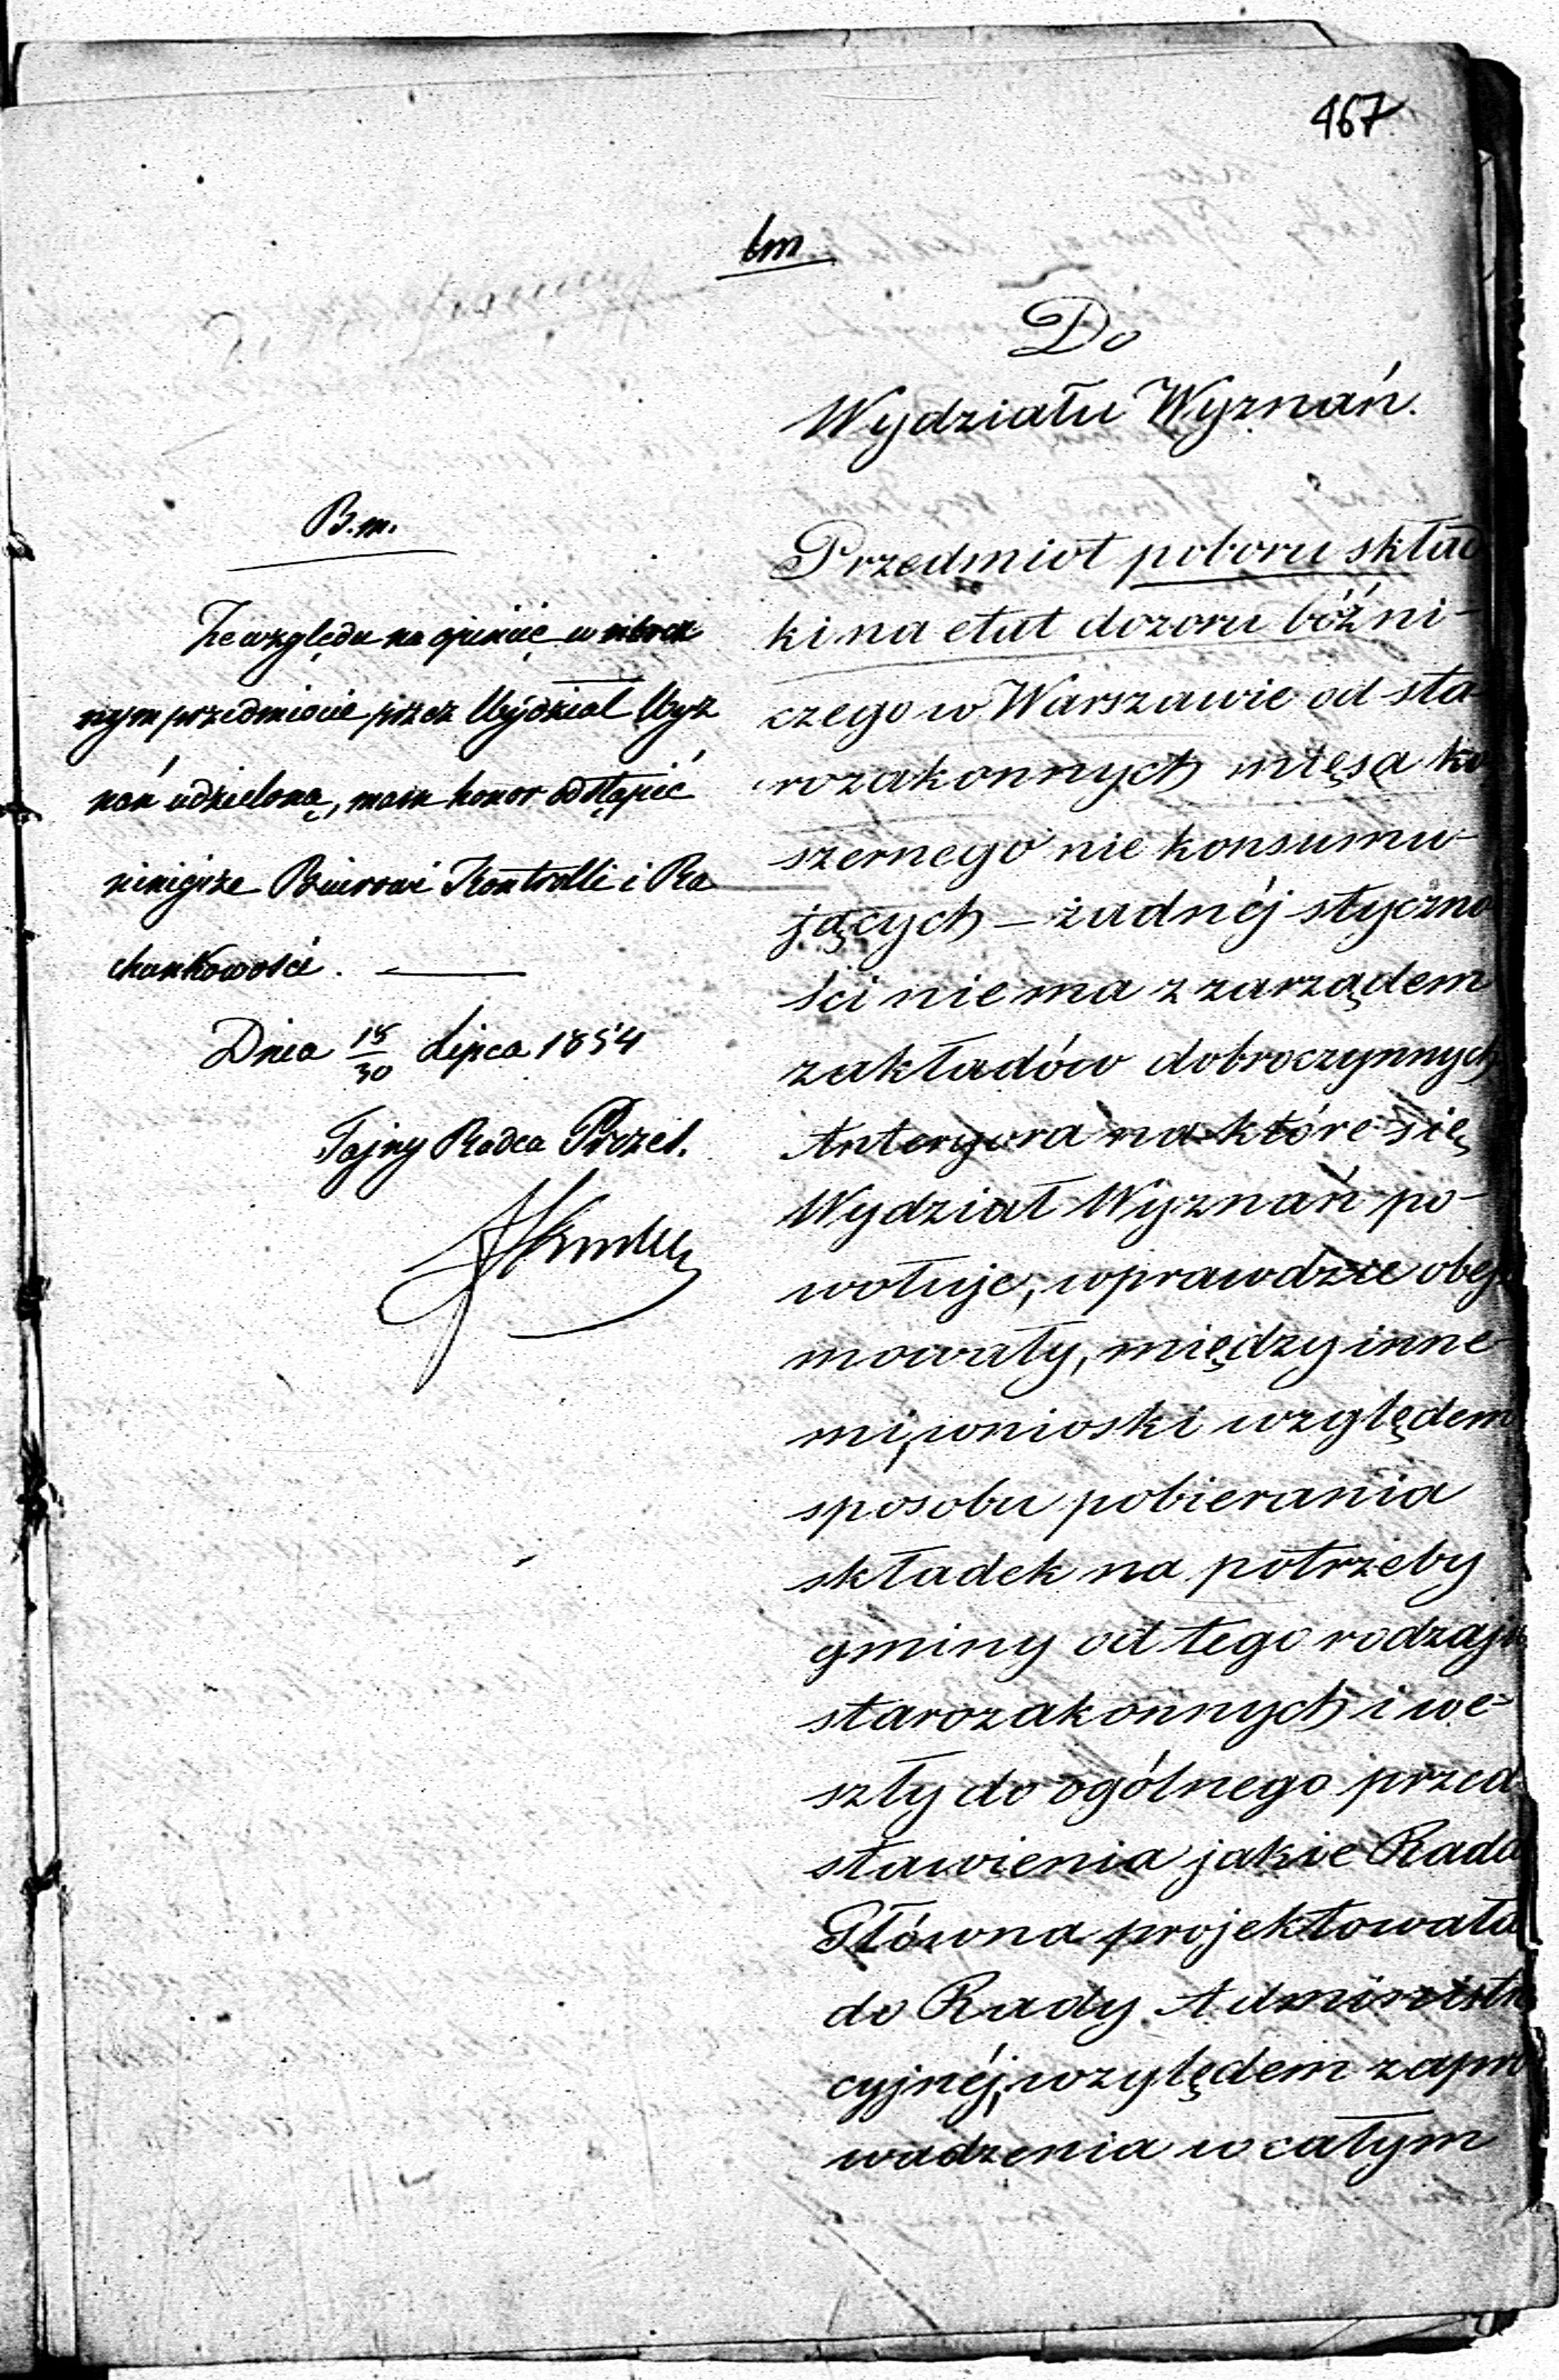 467
bm
Do
Wydziału Wyznań.
Przedmiot poboru skład
ki na etat dozoru bóźni-
czego w Warszawie od sta-
rozakonnych mięsa ko
szernego nie konsumu-
jących – żadnéj styczno
ści niema z zarządem
zakładów dobroczynnych
Anteryora na które się
Wydział Wyznań po-
wołuje, wprawdzie obej
mowały, między inne-
mi, wnioski względem
sposobu pobierania
składek na potrzeby
gminy od tego rodzaju
starozakonnych i we-
szły do ogólnego przed
stawienia jakie Rada
Główna projektowała
do Rady Administra
cyjnéj, względem zapro
wadzenia w całym
B. m.
Ze względu na opinię w
nym przedmiocie przez Wydział Wyz
nań udzieloną, mam honor odstąpić
niniejsze Biurowi Kontrolli i Ra
chunkowości.
Dnia 18/30 Lipca 1854
Tajny Radca Prezes.